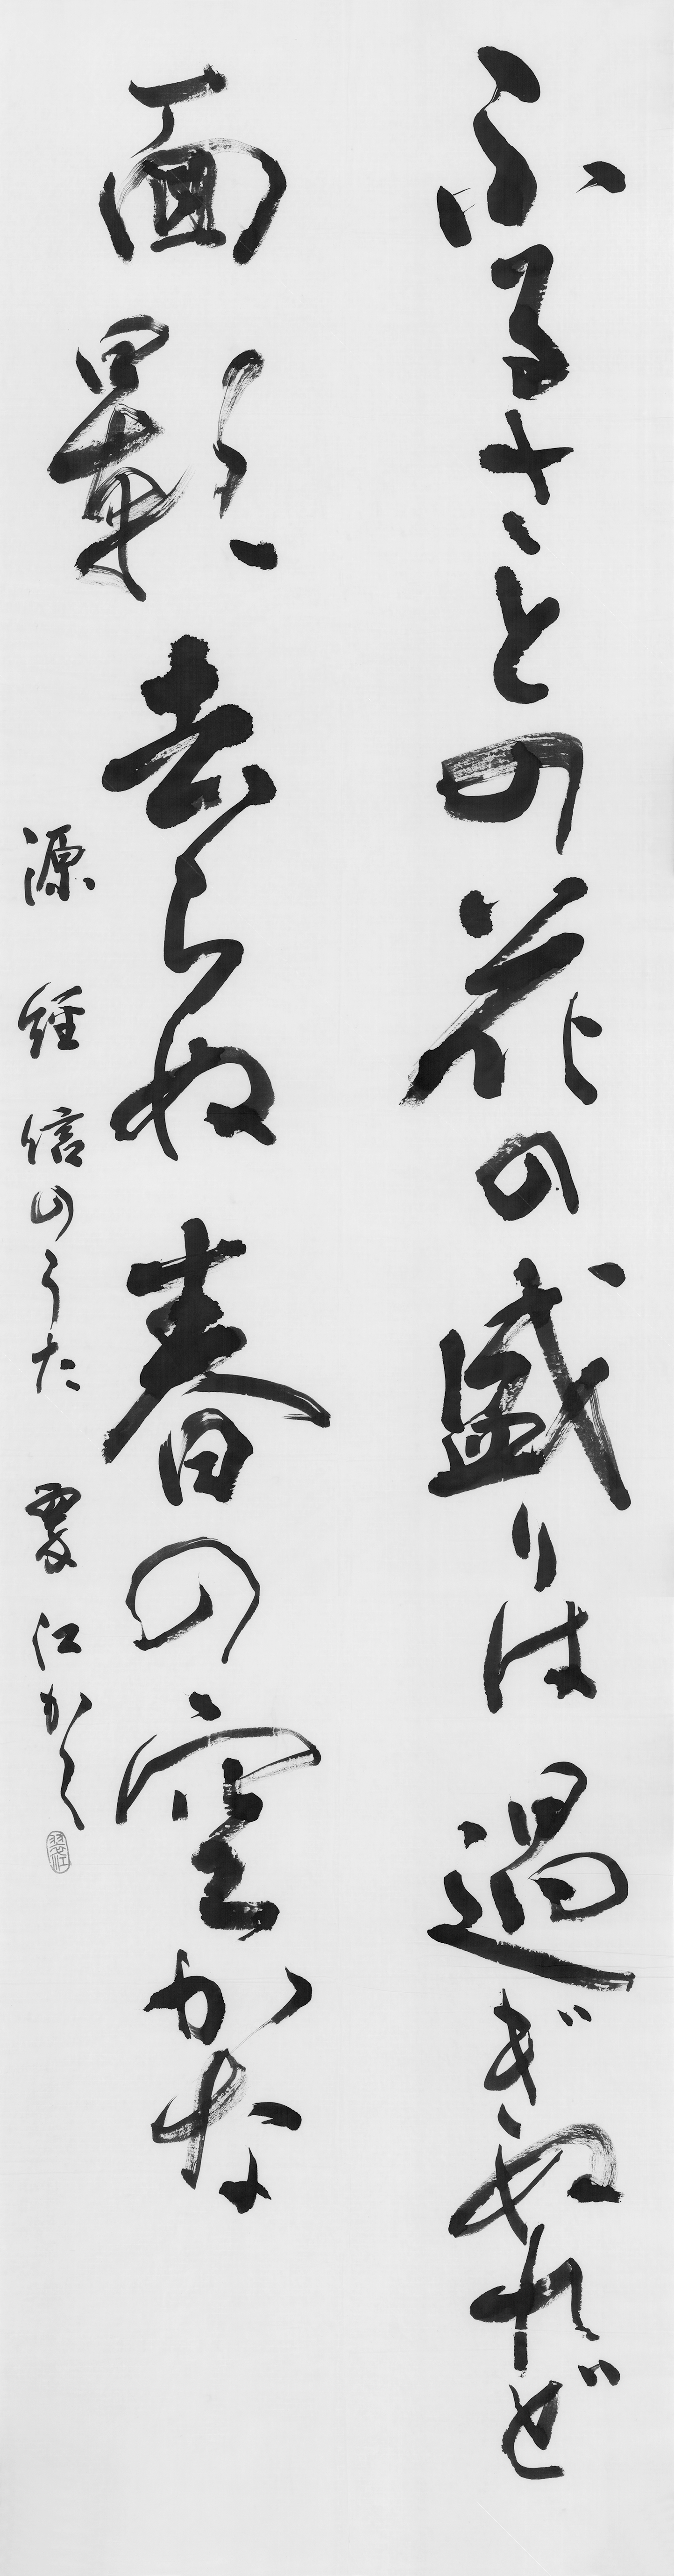 ふるさとの花の盛りは過ぎぬれど
面影去らぬ春の空かな
源経信のうた 翠江かく